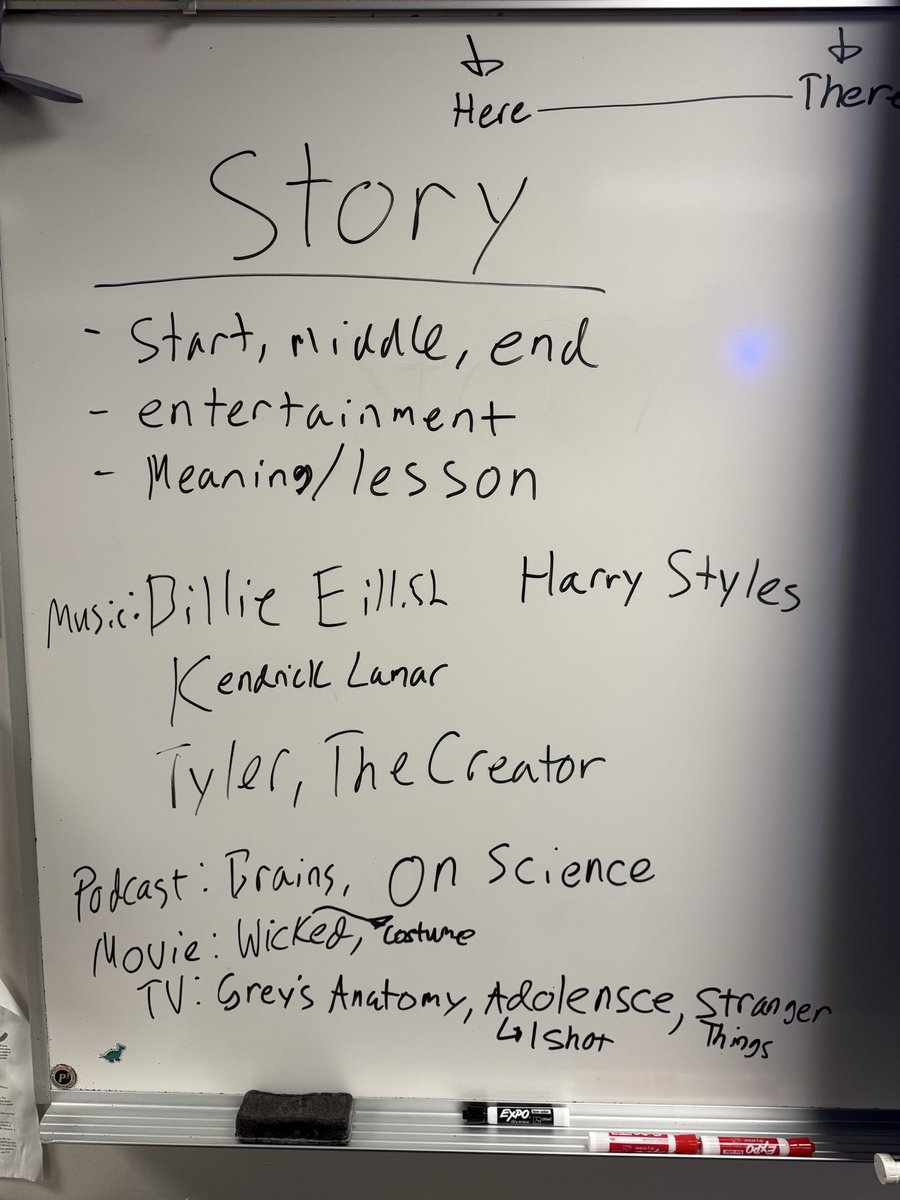 Here There
Story
- Start, middle, end
- entertainment
- Meaning/lesson
Music: Billie Eillish Harry Styles
Kendrick Lamar
Tyler, The Creator
Podcast: Brains, On Science
Movie: Wicked, costume
TV: Grey's Anatomy, Adolensce, Stranger
1 shot Things
EXPO
EXPO